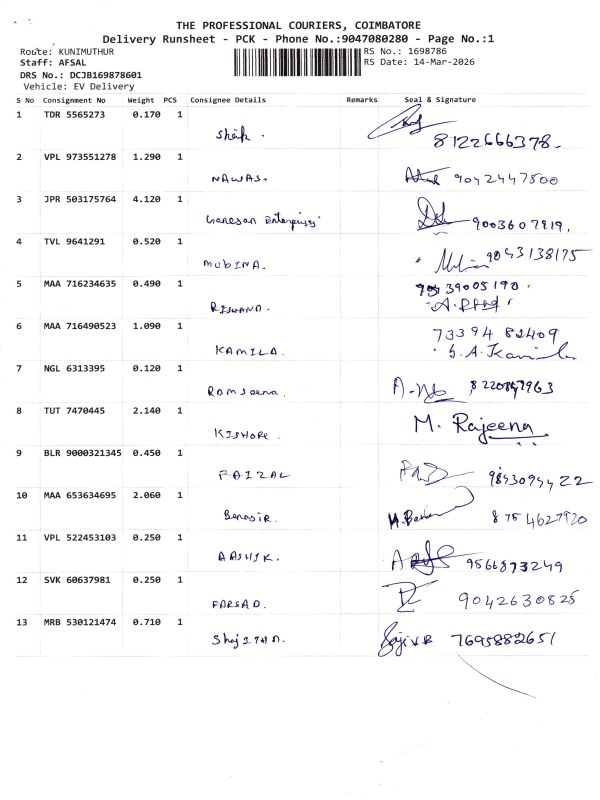 THE PROFESSIONAL COURIERS, COIMBATORE
Delivery Runsheet - PCK - Phone No.:9047080280 - Page No.:1
Route: KUNIMUTHUR RS No.: 1698786
Staff: AFSAL RS Date: 14-Mar-2026
DRS No.: DCJB169878601
Vehicle: EV Delivery
S No Consignment No Weight PCS Consignee Details Remarks Seal & Signature
1 TDR 5565273 0.170 1
8122666378.
2 VPL 973551278 1.290 1
NAWAS. 9042447800
3 JPR 503175764 4.120 1
Ganesan Enterprises 9003607919.
4 TVL 9641291 0.520 1
MUBINA. 9043138175
5 MAA 716234635 0.490 1
39005190.
RISWANA.
6 MAA 716490523 1.090 1
73394 82409
KAMILA.
7 NGL 6313395 0.120 1
Ramseena.
8 TUT 7470445 2.140 1
KISHORE. M. Rajeena
9 BLR 9000321345 0.450 1
FAIZAL
10 MAA 653634695 2.060 1
Benasir. 8754627920
11 VPL 522453103 0.250 1
AASHIK. 9566873249
12 SVK 60637981 0.250 1
FARSAD. 9042630825
13 MRB 530121474 0.710 1
7695882651